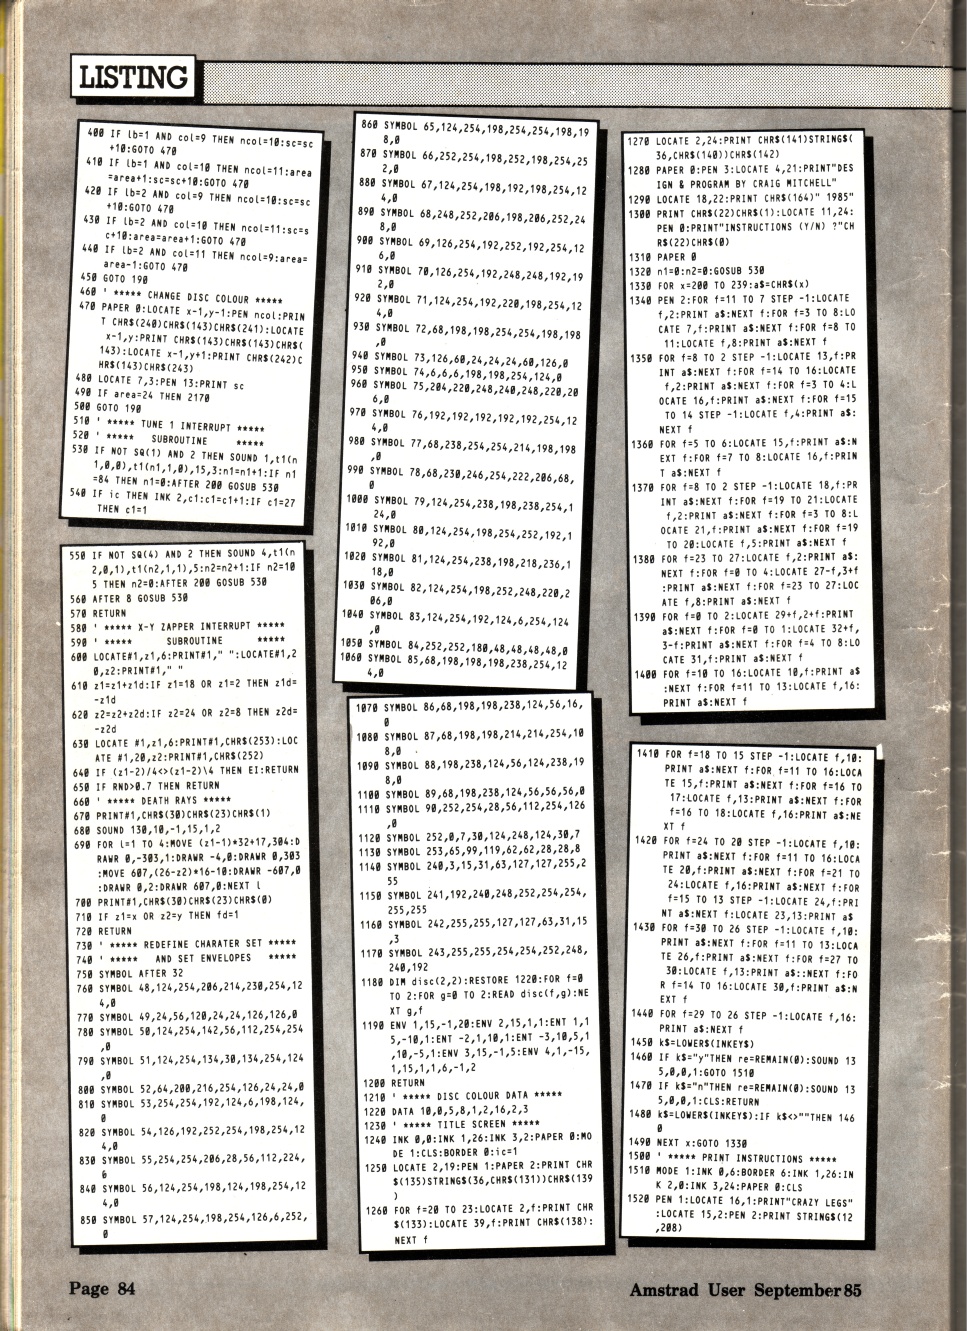 LISTING
400 IF lb=1 AND col=9 THEN ncol=10:sc=sc
+10:GOTO 470
410 IF lb=1 AND col=10 THEN ncol=11:area
=area+1:sc=sc+10:GOTO 470
420 IF lb=2 AND col=9 THEN ncol=10:sc=sc
+10:GOTO 470
430 IF lb=2 AND col=10 THEN ncol=11:sc=s
c+10:area=area+1:GOTO 470
440 IF lb=2 AND col=11 THEN ncol=9:area=
area-1:GOTO 470
450 GOTO 190
460 ' ***** CHANGE DISC COLOUR *****
470 PAPER 0:LOCATE x-1,y-1:PEN ncol:PRIN
T CHR$(240)CHR$(143)CHR$(241):LOCATE
x-1,y:PRINT CHR$(143)CHR$(143)CHR$(
143):LOCATE x-1,y+1:PRINT CHR$(242)C
HR$(143)CHR$(243)
480 LOCATE 7,3:PEN 13:PRINT sc
490 IF area=24 THEN 2170
500 GOTO 190
510 ' ***** TUNE 1 INTERRUPT *****
520 ' ***** SUBROUTINE *****
530 IF NOT SQ(1) AND 2 THEN SOUND 1,t1(n
1,0,0),t1(n1,1,0),15,3:n1=n1+1:IF n1
=84 THEN n1=0:AFTER 200 GOSUB 530
540 IF ic THEN INK 2,c1:c1=c1+1:IF c1=27
THEN c1=1
550 IF NOT SQ(4) AND 2 THEN SOUND 4,t1(n
2,0,1),t1(n2,1,1),5:n2=n2+1:IF n2=10
5 THEN n2=0:AFTER 200 GOSUB 530
560 AFTER 8 GOSUB 530
570 RETURN
580 ' ***** X-Y ZAPPER INTERRUPT *****
590 ' ***** SUBROUTINE *****
600 LOCATE#1,z1,6:PRINT#1," ":LOCATE#1,2
0,z2:PRINT#1," "
610 z1=z1+z1d:IF z1=18 OR z1=2 THEN z1d=
-z1d
620 z2=z2+z2d:IF z2=24 OR z2=8 THEN z2d=
-z2d
630 LOCATE #1,z1,6:PRINT#1,CHR$(253):LOC
ATE #1,20,z2:PRINT#1,CHR$(252)
640 IF (z1-2)/4<>(z1-2)\4 THEN EI:RETURN
650 IF RND>0.7 THEN RETURN
660 ' ***** DEATH RAYS *****
670 PRINT#1,CHR$(30)CHR$(23)CHR$(1)
680 SOUND 130,10,-1,15,1,2
690 FOR l=1 TO 4:MOVE (z1-1)*32+17,304:D
RAWR 0,-303,1:DRAWR -4,0:DRAWR 0,303
:MOVE 607,(26-z2)*16-10:DRAWR -607,0
:DRAWR 0,2:DRAWR 607,0:NEXT l
700 PRINT#1,CHR$(30)CHR$(23)CHR$(0)
710 IF z1=x OR z2=y THEN fd=1
720 RETURN
730 ' ***** REDEFINE CHARATER SET *****
740 ' ***** AND SET ENVELOPES *****
750 SYMBOL AFTER 32
760 SYMBOL 48,124,254,206,214,230,254,12
4,0
770 SYMBOL 49,24,56,120,24,24,126,126,0
780 SYMBOL 50,124,254,142,56,112,254,254
,0
790 SYMBOL 51,124,254,134,30,134,254,124
,0
800 SYMBOL 52,64,200,216,254,126,24,24,0
810 SYMBOL 53,254,254,192,124,6,198,124,
0
820 SYMBOL 54,126,192,252,254,198,254,12
4,0
830 SYMBOL 55,254,254,206,28,56,112,224,
6
840 SYMBOL 56,124,254,198,124,198,254,12
4,0
850 SYMBOL 57,124,254,198,254,126,6,252,
0
860 SYMBOL 65,124,254,198,254,254,198,19
8,0
870 SYMBOL 66,252,254,198,252,198,254,25
2,0
880 SYMBOL 67,124,254,198,192,198,254,12
4,0
890 SYMBOL 68,248,252,206,198,206,252,24
8,0
900 SYMBOL 69,126,254,192,252,192,254,12
6,0
910 SYMBOL 70,126,254,192,248,248,192,19
2,0
920 SYMBOL 71,124,254,192,220,198,254,12
4,0
930 SYMBOL 72,68,198,198,254,254,198,198
,0
940 SYMBOL 73,126,60,24,24,24,60,126,0
950 SYMBOL 74,6,6,6,198,198,254,124,0
960 SYMBOL 75,204,220,248,240,248,220,20
6,0
970 SYMBOL 76,192,192,192,192,192,254,12
4,0
980 SYMBOL 77,68,238,254,254,214,198,198
,0
990 SYMBOL 78,68,230,246,254,222,206,68,
0
1000 SYMBOL 79,124,254,238,198,238,254,1
24,0
1010 SYMBOL 80,124,254,198,254,252,192,1
92,0
1020 SYMBOL 81,124,254,238,198,218,236,1
18,0
1030 SYMBOL 82,124,254,198,252,248,220,2
06,0
1040 SYMBOL 83,124,254,192,124,6,254,124
,0
1050 SYMBOL 84,252,252,180,48,48,48,48,0
1060 SYMBOL 85,68,198,198,198,238,254,12
4,0
1070 SYMBOL 86,68,198,198,238,124,56,16,
0
1080 SYMBOL 87,68,198,198,214,214,254,10
8,0
1090 SYMBOL 88,198,238,124,56,124,238,19
8,0
1100 SYMBOL 89,68,198,238,124,56,56,56,0
1110 SYMBOL 90,252,254,28,56,112,254,126
,0
1120 SYMBOL 252,0,7,30,124,248,124,30,7
1130 SYMBOL 253,65,99,119,62,62,28,28,8
1140 SYMBOL 240,3,15,31,63,127,127,255,2
55
1150 SYMBOL 241,192,240,248,252,254,254,
255,255
1160 SYMBOL 242,255,255,127,127,63,31,15
,3
1170 SYMBOL 243,255,255,254,254,252,248,
240,192
1180 DIM disc(2,2):RESTORE 1220:FOR f=0
TO 2:FOR g=0 TO 2:READ disc(f,g):NE
XT g,f
1190 ENV 1,15,-1,20:ENV 2,15,1,1:ENT 1,1
5,-10,1:ENT -2,1,10,1:ENT -3,10,5,1
,10,-5,1:ENV 3,15,-1,5:ENV 4,1,-15,
1,15,1,1,6,-1,2
1200 RETURN
1210 ' ***** DISC COLOUR DATA *****
1220 DATA 10,0,5,8,1,2,16,2,3
1230 ' ***** TITLE SCREEN *****
1240 INK 0,0:INK 1,26:INK 3,2:PAPER 0:MO
DE 1:CLS:BORDER 0:ic=1
1250 LOCATE 2,19:PEN 1:PAPER 2:PRINT CHR
$(135)STRING$(36,CHR$(131))CHR$(139
)
1260 FOR f=20 TO 23:LOCATE 2,f:PRINT CHR
$(133):LOCATE 39,f:PRINT CHR$(138):
NEXT f
1270 LOCATE 2,24:PRINT CHR$(141)STRING$(
36,CHR$(140))CHR$(142)
1280 PAPER 0:PEN 3:LOCATE 4,21:PRINT"DES
IGN & PROGRAM BY CRAIG MITCHELL"
1290 LOCATE 18,22:PRINT CHR$(164)" 1985"
1300 PRINT CHR$(22)CHR$(1):LOCATE 11,24:
PEN 0:PRINT"INSTRUCTIONS (Y/N) ?"CH
R$(22)CHR$(0)
1310 PAPER 0
1320 n1=0:n2=0:GOSUB 530
1330 FOR x=200 TO 239:a$=CHR$(x)
1340 PEN 2:FOR f=11 TO 7 STEP -1:LOCATE
f,2:PRINT a$:NEXT f:FOR f=3 TO 8:LO
CATE 7,f:PRINT a$:NEXT f:FOR f=8 TO
11:LOCATE f,8:PRINT a$:NEXT f
1350 FOR f=8 TO 2 STEP -1:LOCATE 13,f:PR
INT a$:NEXT f:FOR f=14 TO 16:LOCATE
f,2:PRINT a$:NEXT f:FOR f=3 TO 4:L
OCATE 16,f:PRINT a$:NEXT f:FOR f=15
TO 14 STEP -1:LOCATE f,4:PRINT a$:
NEXT f
1360 FOR f=5 TO 6:LOCATE 15,f:PRINT a$:N
EXT f:FOR f=7 TO 8:LOCATE 16,f:PRIN
T a$:NEXT f
1370 FOR f=8 TO 2 STEP -1:LOCATE 18,f:PR
INT a$:NEXT f:FOR f=19 TO 21:LOCATE
f,2:PRINT a$:NEXT f:FOR f=3 TO 8:L
OCATE 21,f:PRINT a$:NEXT f:FOR f=19
TO 20:LOCATE f,5:PRINT a$:NEXT f
1380 FOR f=23 TO 27:LOCATE f,2:PRINT a$:
NEXT f:FOR f=0 TO 4:LOCATE 27-f,3+f
:PRINT a$:NEXT f:FOR f=23 TO 27:LOC
ATE f,8:PRINT a$:NEXT f
1390 FOR f=0 TO 2:LOCATE 29+f,2+f:PRINT
a$:NEXT f:FOR f=0 TO 1:LOCATE 32+f,
3-f:PRINT a$:NEXT f:FOR f=4 TO 8:LO
CATE 31,f:PRINT a$:NEXT f
1400 FOR f=10 TO 16:LOCATE 10,f:PRINT a$
:NEXT f:FOR f=11 TO 13:LOCATE f,16:
PRINT a$:NEXT f
1410 FOR f=18 TO 15 STEP -1:LOCATE f,10:
PRINT a$:NEXT f:FOR f=11 TO 16:LOCA
TE 15,f:PRINT a$:NEXT f:FOR f=16 TO
17:LOCATE f,13:PRINT a$:NEXT f:FOR
f=16 TO 18:LOCATE f,16:PRINT a$:NE
XT f
1420 FOR f=24 TO 20 STEP -1:LOCATE f,10:
PRINT a$:NEXT f:FOR f=11 TO 16:LOCA
TE 20,f:PRINT a$:NEXT f:FOR f=21 TO
24:LOCATE f,16:PRINT a$:NEXT f:FOR
f=15 TO 13 STEP -1:LOCATE 24,f:PRI
NT a$:NEXT f:LOCATE 23,13:PRINT a$
1430 FOR f=30 TO 26 STEP -1:LOCATE f,10:
PRINT a$:NEXT f:FOR f=11 TO 13:LOCA
TE 26,f:PRINT a$:NEXT f:FOR f=27 TO
30:LOCATE f,13:PRINT a$::NEXT f:FO
R f=14 TO 16:LOCATE 30,f:PRINT a$:N
EXT f
1440 FOR f=29 TO 26 STEP -1:LOCATE f,16:
PRINT a$:NEXT f
1450 k$=LOWER$(INKEY$)
1460 IF k$="y"THEN re=REMAIN(0):SOUND 13
5,0,0,1:GOTO 1510
1470 IF k$="n"THEN re=REMAIN(0):SOUND 13
5,0,0,1:CLS:RETURN
1480 k$=LOWER$(INKEY$):IF k$<>""THEN 146
0
1490 NEXT x:GOTO 1330
1500 ' ***** PRINT INSTRUCTIONS *****
1510 MODE 1:INK 0,6:BORDER 6:INK 1,26:IN
K 2,0:INK 3,24:PAPER 0:CLS
1520 PEN 1:LOCATE 16,1:PRINT"CRAZY LEGS"
:LOCATE 15,2:PEN 2:PRINT STRING$(12
,208)
Page 84
Amstrad User September 85